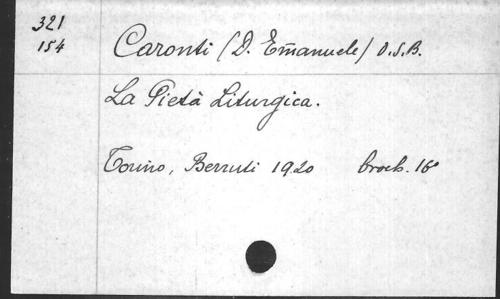 321
154
Caronti (D. Emanuele) O.S.B.
La Pietà Liturgica.
Torino, Berruti 1920 broch. 16°